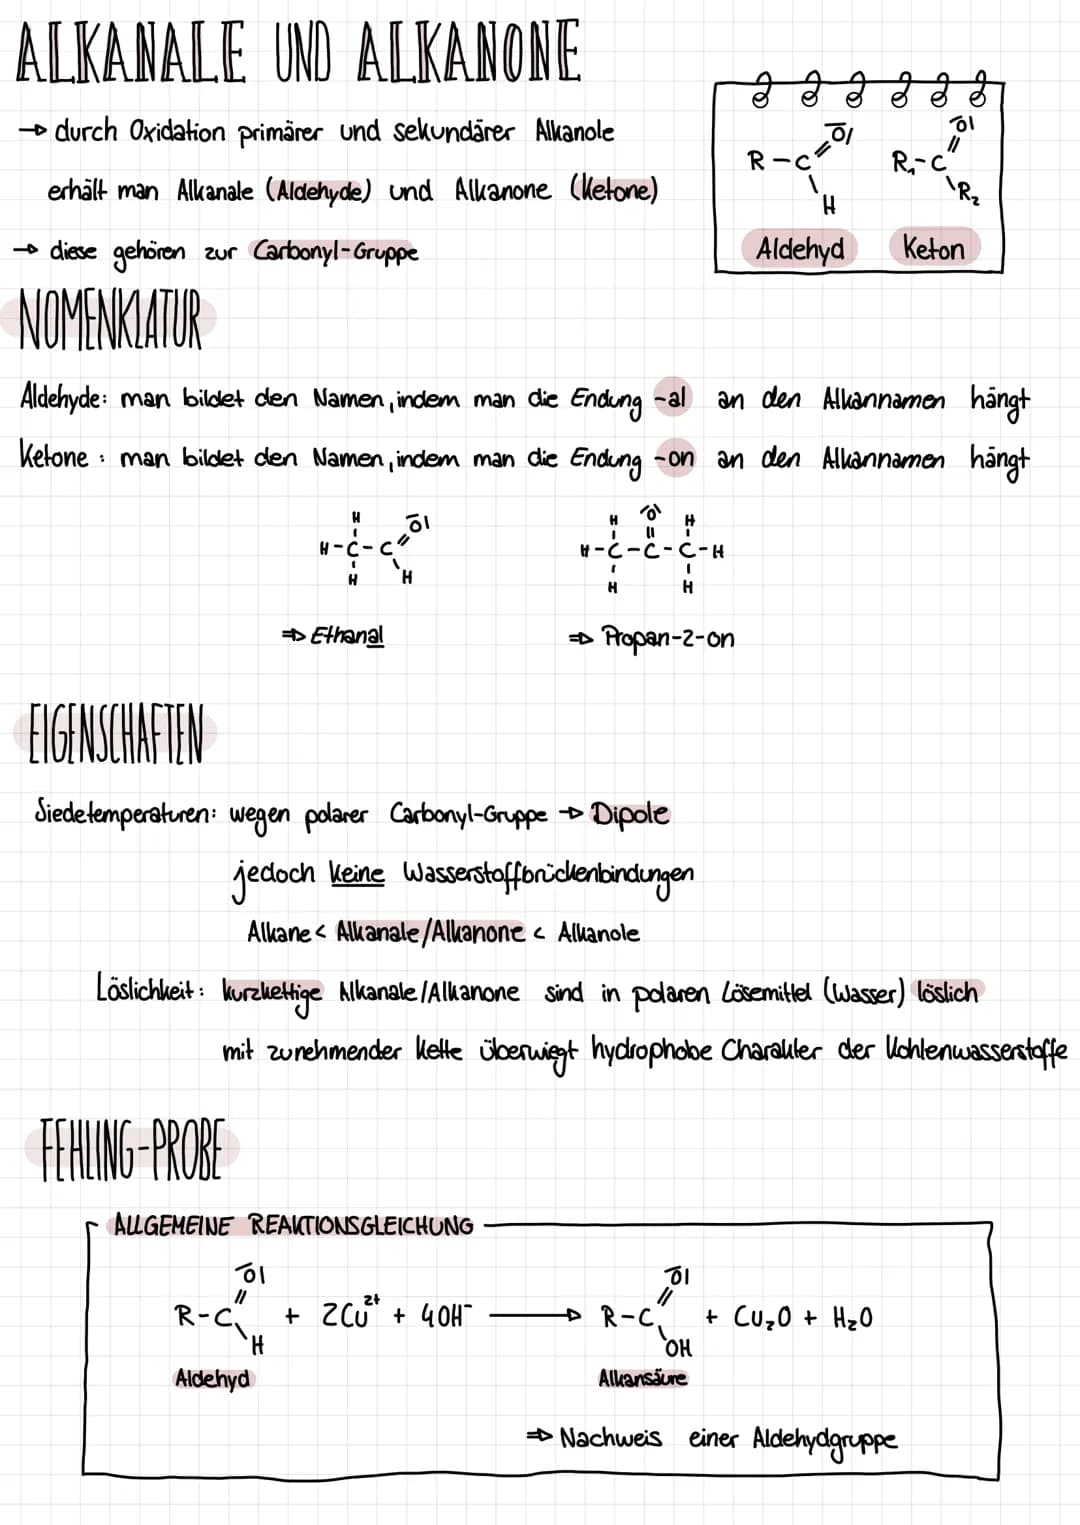 ALKANALE UND ALKANONE
→ durch Oxidation primärer und sekundärer Alkanole
erhält man Alkanale (Aldehyde) und Alkanone (Ketone)
→ diese gehören zur Carbonyl-Gruppe
R-C=O| H
R₁-C=O| R₂
Aldehyd Keton
NOMENKLATUR
Aldehyde: man bildet den Namen, indem man die Endung -al an den Alkannamen hängt
Ketone: man bildet den Namen, indem man die Endung -on an den Alkannamen hängt
H O|
H-C-C
H H
H |O| H
H-C-C-C-H
H H
⇒ Ethanal
⇒ Propan-2-on
EIGENSCHAFTEN
Siedetemperaturen: wegen polarer Carbonyl-Gruppe → Dipole
jedoch keine Wasserstoffbrückenbindungen
Alkane < Alkanale/Alkanone < Alkanole
Löslichkeit: kurzkettige Alkanale/Alkanone sind in polaren Lösemittel (Wasser) löslich
mit zunehmender Kette überwiegt hydrophobe Charakter der Kohlenwasserstoffe
FEHLING-PROBE
ALLGEMEINE REAKTIONSGLEICHUNG
O| O|
R-C + 2Cu²⁺ + 4OH⁻ → R-C + Cu₂O + H₂O
H OH
Aldehyd Alkansäure
⇒ Nachweis einer Aldehydgruppe